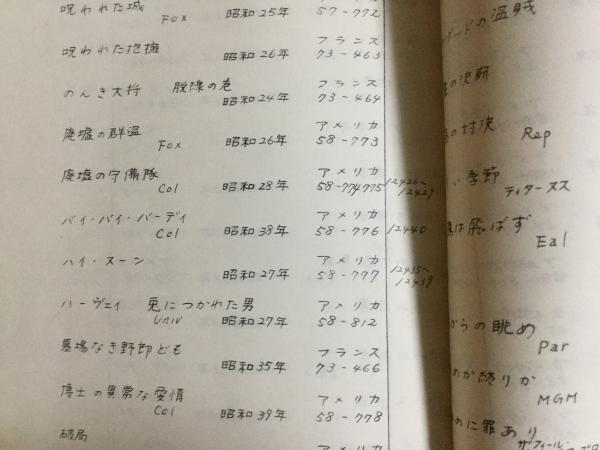 呪われた城
Fox 昭和25年 57-772
呪われた抱擁 フランス
昭和26年 73-463
のんき大将 脱線の巻 フランス
昭和24年 73-464
廃墟の群盗 アメリカ
Fox 昭和26年 58-773
廃墟の守備隊 アメリカ
Col 昭和28年 58-774,775 12426~12429
バイ・バイ・バーディ アメリカ
Col 昭和38年 58-776 12440
ハイ・ヌーン アメリカ
昭和27年 58-777 12435~12439
ハーヴェイ 兎につかれた男 アメリカ
Univ 昭和27年 58-812
墓場なき野郎ども フランス
昭和35年 73-466
博士の異常な愛情 アメリカ
Col 昭和39年 58-778
破局
アメリカ
の盗賊
の決闘
の対決
Rep
い季節
ティタヌス
は飛ばず
Eal
からの眺め
Par
のか終りか
MGM
めに罪あり
ザ・フィール